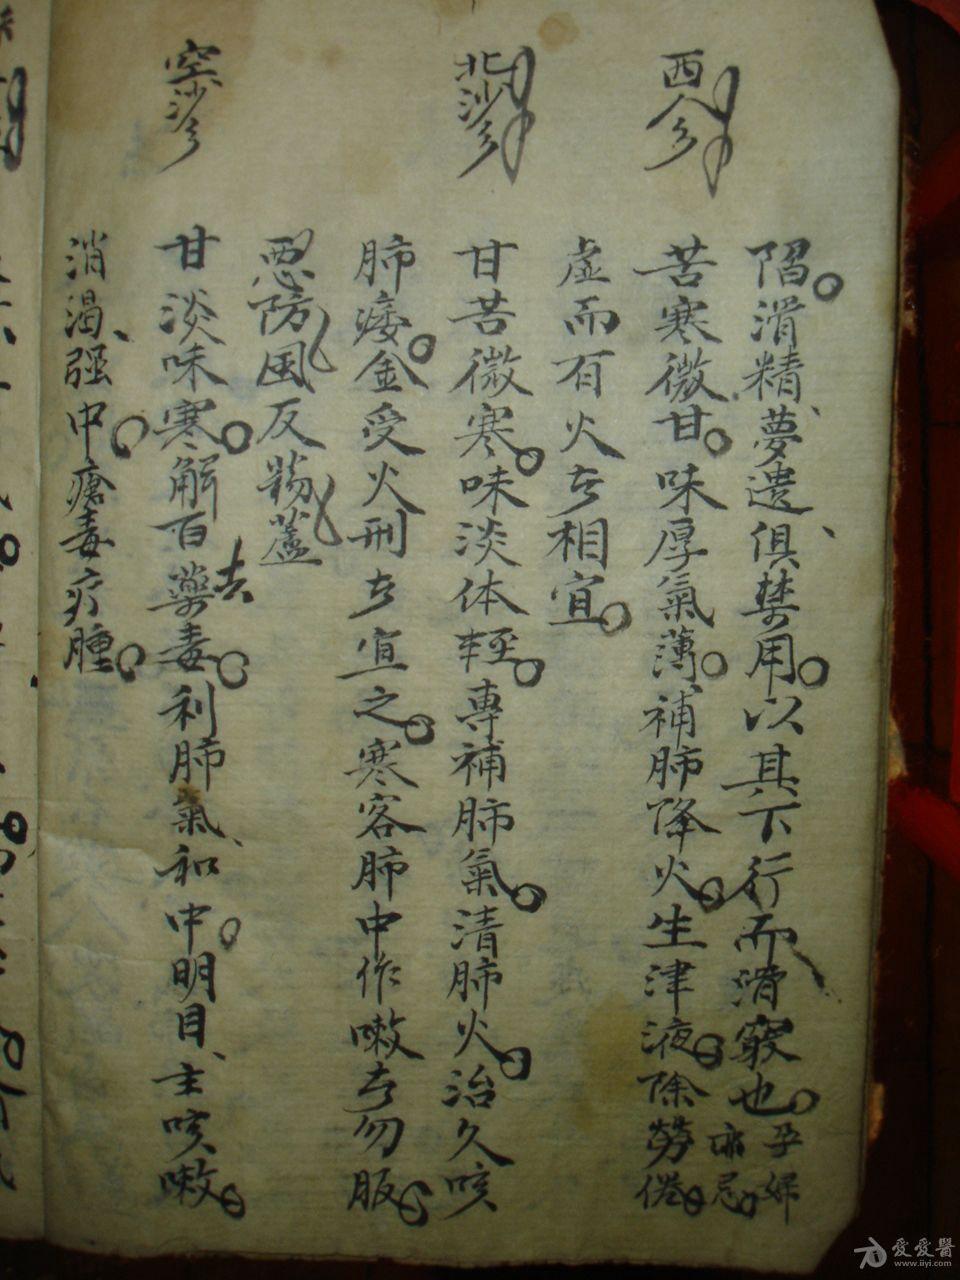 陷滑精、夢遺、俱禁用。以其下行而滑竅也。孕婦亦忌。
西人参
苦寒微甘。味厚氣薄。補肺降火。生津液。除勞倦。
虛而有火者相宜。
北沙参
甘苦微寒。味淡体輕。專補肺氣。清肺火。治久咳
肺痿。金受火刑者宜之。寒客肺中作嗽者勿服。
惡防風反藜蘆
空沙参
甘淡味寒。解百藥毒。利肺氣、和中。明目、主咳嗽。
去
消渴、强中。瘡毒疔腫。
愛愛醫
www.iiyi.com